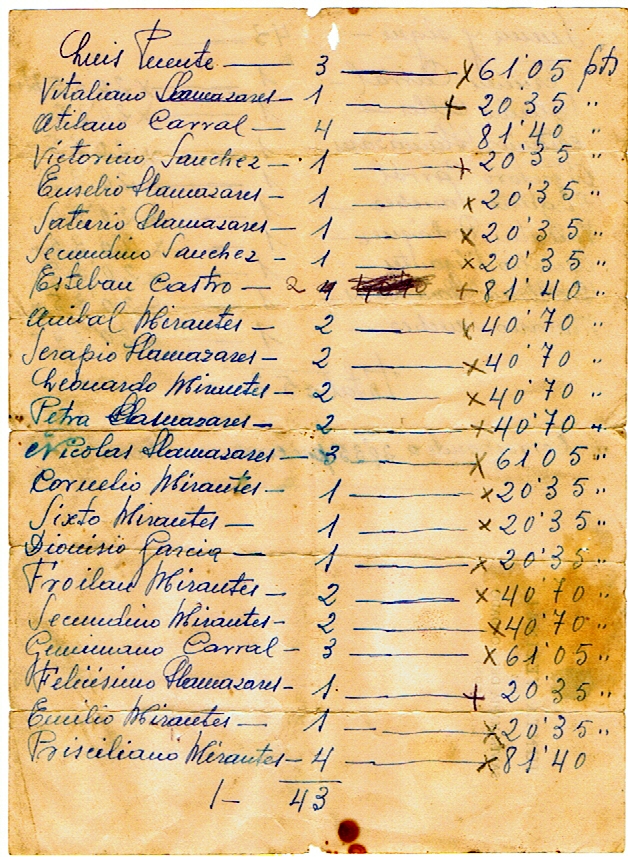 Luis Puente — 3 — x 61'05 pts
Vitaliano Llamazares — 1 — + 20'35 "
Atilano Carral — 4 — 81'40 "
Victorino Sanchez — 1 — + 20'35 "
Eusebio Llamazares — 1 — x 20'35 "
Saturio Llamazares — 1 — x 20'35 "
Secundino Sanchez — 1 — x 20'35 "
Esteban Castro — 2 4 + 81'40 "
Anibal Mirantes — 2 — x 40'70 "
Serapio Llamazares — 2 — x 40'70 "
Leonardo Mirantes — 2 — x 40'70 "
Petra Llamazares — 2 — x 40'70 "
Nicolas Llamazares — 3 — x 61'05 "
Cornelio Mirantes — 1 — x 20'35 "
Sixto Mirantes — 1 — x 20'35 "
Dionisio Garcia — 1 — x 20'35 "
Froilan Mirantes — 2 — x 40'70 "
Secundino Mirantes — 2 — x 40'70 "
Geminiano Carral — 3 — x 61'05 "
Felicisimo Llamazares — 1 — + 20'35 "
Emilio Mirantes — 1 — x 20'35 "
Prisciliano Mirantes — 4 — x 81'40
1 — 43